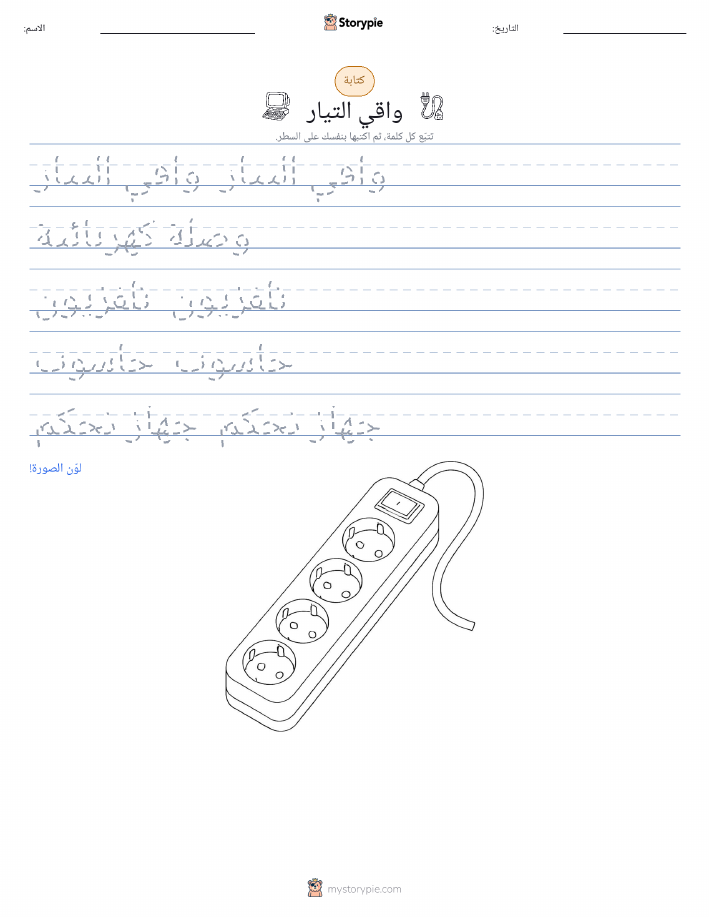 Storypie
الاسم: التاريخ:
كتابة
واقي التيار
تتبّع كل كلمة، ثم اكتبها بنفسك على السطر.
واقي التيار واقي التيار
وصلة كهربائية
تلفزيون تلفزيون
حاسوب حاسوب
جهاز تحكم جهاز تحكم
لوّن الصورة!
mystorypie.com